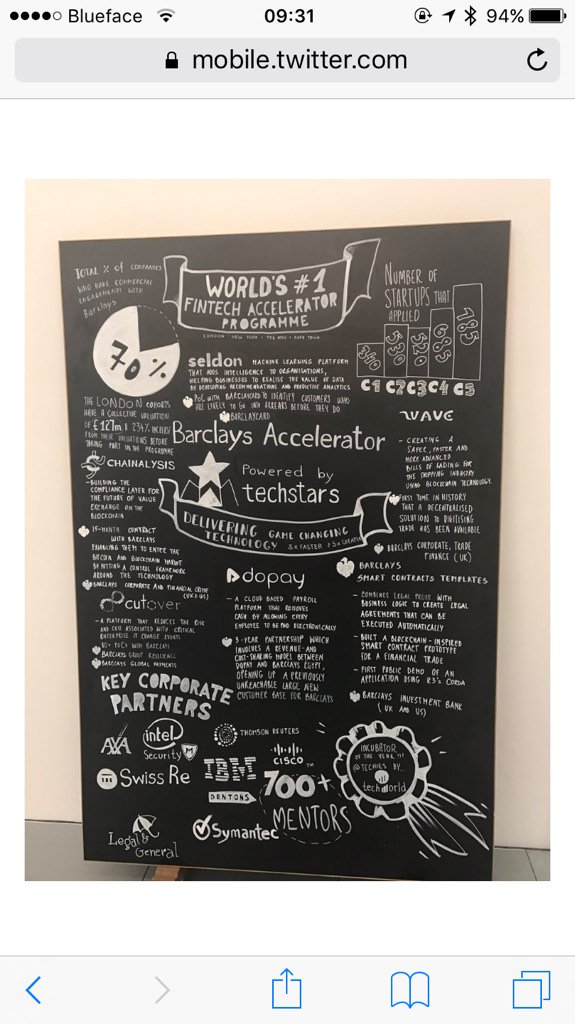 Blueface
09:31
94%
mobile.twitter.com
TOTAL % of COMPANIES
WHO HAVE COMMERCIAL
ENGAGEMENTS WITH
Barclays
70%
WORLD'S #1
FINTECH ACCELERATOR
PROGRAMME
LONDON • NEW YORK • TEL AVIV • CAPE TOWN
NUMBER OF
STARTUPS THAT
APPLIED
340
530
520
685
785
C1 C2 C3 C4 C5
seldon MACHINE LEARNING PLATFORM
THAT ADDS INTELLIGENCE TO ORGANISATIONS,
HELPING BUSINESSES TO REALISE THE VALUE OF DATA
BY DEVELOPING RECOMMENDATIONS AND PREDICTIVE ANALYTICS
POC WITH BARCLAYCARD TO IDENTIFY CUSTOMERS WHO
ARE LIKELY TO GO INTO ARREARS BEFORE THEY DO
BARCLAYCARD
THE LONDON COHORTS
HAVE A COLLECTIVE VALUATION
OF £127m A 234% INCREASE
FROM THEIR VALUATIONS BEFORE
TAKING PART IN THE PROGRAMME
Barclays Accelerator
Powered by
techstars
DELIVERING GAME CHANGING
TECHNOLOGY 3x FASTER
CHAINALYSIS
- BUILDING THE
COMPLIANCE LAYER FOR
THE FUTURE OF VALUE
EXCHANGE ON THE
BLOCKCHAIN
-MONTH CONTRACT
WITH BARCLAYS
ENABLING THEM TO ENTER THE
BITCOIN AND BLOCKCHAIN MARKET
BY PUTTING A CONTROL FRAMEWORK
AROUND THE TECHNOLOGY
BARCLAYS CORPORATE AND FINANCIAL CRIME
(UK & US)
WAVE
- CREATING A
SAFER, FASTER AND
MORE ADVANCED
BILLS OF LADING FOR
THE SHIPPING INDUSTRY
USING BLOCKCHAIN TECHNOLOGY.
FIRST TIME IN HISTORY
THAT A DECENTRALISED
SOLUTION TO DIGITISING
TRADE HAS BEEN AVAILABLE
BARCLAYS CORPORATE, TRADE
FINANCE (UK)
cutover
- A PLATFORM THAT REDUCES THE RISK
AND COST ASSOCIATED WITH CRITICAL
ENTERPRISE IT CHANGE EVENTS
10+ POCS WITH BARCLAYS
BARCLAYS GROUP RESILIENCE
BARCLAYS GLOBAL PAYMENTS
dopay
- A CLOUD BASED PAYROLL
PLATFORM THAT REMOVES
CASH BY ALLOWING EVERY
EMPLOYEE TO BE PAID ELECTRONICALLY
5-YEAR PARTNERSHIP WHICH
INVOLVES A REVENUE-AND
COST-SHARING MODEL BETWEEN
DOPAY AND BARCLAYS EGYPT,
OPENING UP A PREVIOUSLY
UNREACHABLE LARGE NEW
CUSTOMER BASE FOR BARCLAYS
BARCLAYS
SMART CONTRACTS TEMPLATES
- COMBINES LEGAL PROSE WITH
BUSINESS LOGIC TO CREATE LEGAL
AGREEMENTS THAT CAN BE
EXECUTED AUTOMATICALLY
- BUILT A BLOCKCHAIN-INSPIRED
SMART CONTRACT PROTOTYPE
FOR A FINANCIAL TRADE
- FIRST PUBLIC DEMO OF AN
APPLICATION USING R3'S CORDA
BARCLAYS INVESTMENT BANK
(UK AND US)
KEY CORPORATE
PARTNERS
AXA
intel
Security
THOMSON REUTERS
CISCO
Swiss Re
IBM
DENTONS
700+
MENTORS
Legal &
General
Symantec
INCUBATOR
OF THE YEAR !!!
@ TECHIES BY...
techworld